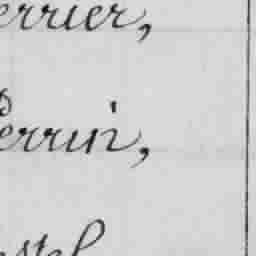 errier,
Perrin,
stel